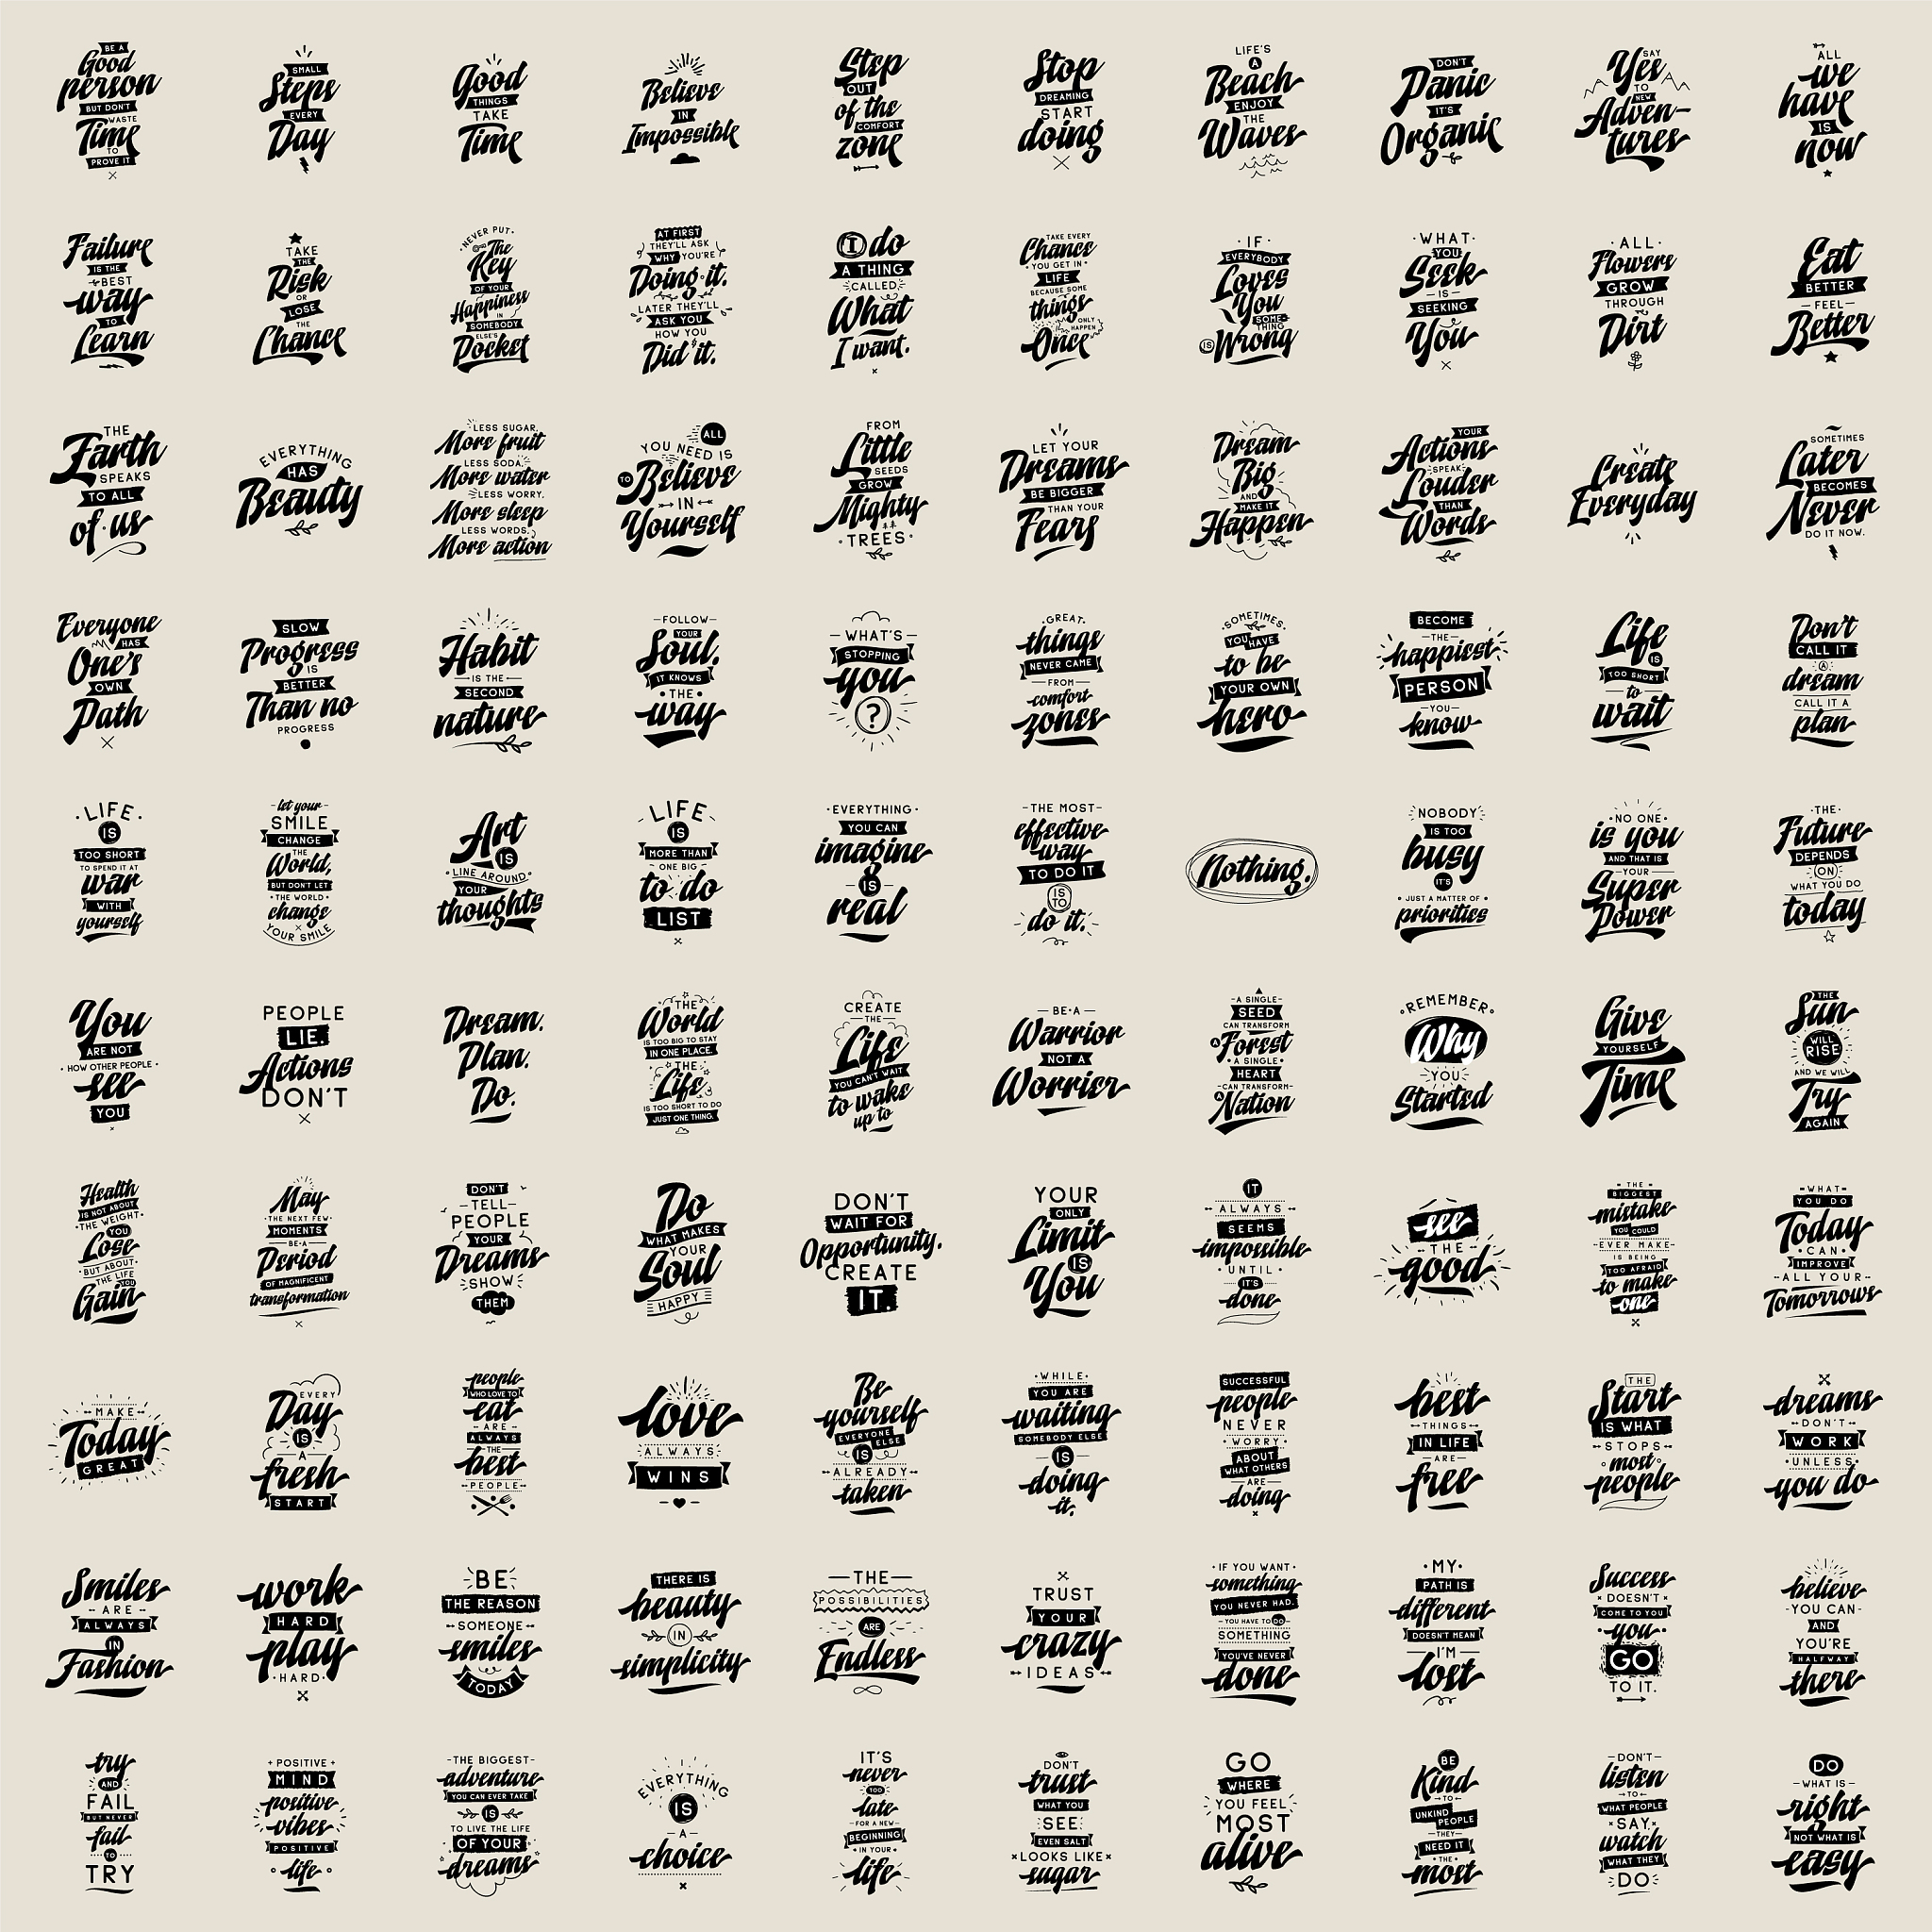 BE A
Good
person
BUT DON'T
WASTE
Time
TO
PROVE IT
SMALL
Steps
EVERY
Day
Good
THINGS
TAKE
Time
Believe
IN
Impossible
Step
OUT
of the
COMFORT
zone
Stop
DREAMING
START
doing
LIFE'S
A
Beach
ENJOY
THE
Waves
DON'T
Panic
IT'S
Organic
SAY
Yes
TO
NEW
Adven-
tures
ALL
we
have
IS
now
Failure
IS THE
BEST
way
TO
Learn
TAKE
THE
Risk
OR
LOSE
THE
Chance
NEVER PUT
The
Key
OF YOUR
Happiness
IN
SOMEBODY
ELSE'S
Pocket
AT FIRST
THEY'LL ASK
WHY YOU'RE
Doing it.
LATER THEY'LL
ASK YOU
HOW YOU
Did it.
I do
A THING
CALLED
What
I want.
TAKE EVERY
Chance
YOU GET IN
LIFE
BECAUSE SOME
things
ONLY
HAPPEN
Once
IF
EVERYBODY
Loves
You
SOME-
THING
IS Wrong
WHAT
YOU
Seek
IS
SEEKING
You
ALL
Flowers
GROW
THROUGH
Dirt
Eat
BETTER
FEEL
Better
THE
Earth
SPEAKS
TO ALL
of us
EVERYTHING
HAS
Beauty
LESS SUGAR,
More fruit
LESS SODA,
More water
LESS WORRY,
More sleep
LESS WORDS,
More action
ALL
YOU NEED IS
TO Believe
IN
Yourself
FROM
Little
SEEDS
GROW
Mighty
TREES
LET YOUR
Dreams
BE BIGGER
THAN YOUR
Fears
Dream
Big
AND
MAKE IT
Happen
YOUR
Actions
SPEAK
Louder
THAN
Words
Create
Everyday
SOMETIMES
Later
BECOMES
Never
DO IT NOW.
Everyone
HAS
One's
OWN
Path
SLOW
Progress
IS
BETTER
Than no
PROGRESS
Habit
IS THE
SECOND
nature
FOLLOW
YOUR
Soul,
IT KNOWS
THE
way
WHAT'S
STOPPING
you
?
GREAT
things
NEVER CAME
FROM
comfort
zones
SOMETIMES
YOU HAVE
to be
YOUR OWN
hero
BECOME
THE
happiest
PERSON
YOU
know
Life
IS
TOO SHORT
to
wait
Don't
CALL IT
A
dream
CALL IT A
plan
LIFE
IS
TOO SHORT
TO SPEND IT AT
war
WITH
yourself
let your
SMILE
CHANGE
THE
World,
BUT DON'T LET
THE WORLD
change
YOUR SMILE
Art
IS
LINE AROUND
YOUR
thoughts
LIFE
IS
MORE THAN
ONE BIG
to do
LIST
EVERYTHING
YOU CAN
imagine
IS
real
THE MOST
effective
way
TO DO IT
IS
TO
do it.
Nothing.
NOBODY
IS TOO
busy
IT'S
JUST A MATTER OF
priorities
NO ONE
is you
AND THAT IS
YOUR
Super
Power
THE
Future
DEPENDS
ON
WHAT YOU DO
today
You
ARE NOT
HOW OTHER PEOPLE
see
YOU
PEOPLE
LIE.
Actions
DON'T
Dream.
Plan.
Do.
THE
World
IS TOO BIG TO STAY
IN ONE PLACE.
THE
Life
IS TOO SHORT TO DO
JUST ONE THING.
CREATE
THE
Life
YOU CAN'T WAIT
to wake
up to
BE A
Warrior
NOT A
Worrier
A SINGLE
SEED
CAN TRANSFORM
A Forest
A SINGLE
HEART
CAN TRANSFORM
A Nation
REMEMBER
Why
YOU
Started
Give
YOURSELF
Time
THE
Sun
WILL
RISE
AND WE WILL
Try
AGAIN
Health
IS NOT ABOUT
THE WEIGHT
YOU
Lose
BUT ABOUT
THE LIFE
YOU
Gain
May
THE NEXT FEW
MOMENTS
BE A
Period
OF MAGNIFICENT
transformation
DON'T
TELL
PEOPLE
YOUR
Dreams
SHOW
THEM
Do
WHAT MAKES
YOUR
Soul
HAPPY
DON'T
WAIT FOR
Opportunity.
CREATE
IT.
YOUR
ONLY
Limit
IS
You
IT
ALWAYS
SEEMS
impossible
UNTIL
IT'S
done
see
THE
good
THE
BIGGEST
mistake
YOU COULD
EVER MAKE
IS BEING
TOO AFRAID
to make
one
WHAT
YOU DO
Today
CAN
IMPROVE
ALL YOUR
Tomorrows
MAKE
Today
GREAT
EVERY
Day
IS
A
fresh
START
people
WHO LOVE TO
eat
ARE
ALWAYS
THE
best
PEOPLE
love
ALWAYS
WINS
Be
yourself
EVERYONE
ELSE
IS
ALREADY
taken
WHILE
YOU ARE
waiting
SOMEBODY ELSE
IS
doing
it.
SUCCESSFUL
people
NEVER
WORRY
ABOUT
WHAT OTHERS
ARE
doing
best
THINGS
IN LIFE
ARE
free
THE
Start
IS WHAT
STOPS
most
people
dreams
DON'T
WORK
UNLESS
you do
Smiles
ARE
ALWAYS
IN
Fashion
work
HARD
play
HARD
BE
THE REASON
SOMEONE
smiles
TODAY
THERE IS
beauty
IN
simplicity
THE
POSSIBILITIES
ARE
Endless
TRUST
YOUR
crazy
IDEAS
IF YOU WANT
something
YOU NEVER HAD,
YOU HAVE TO DO
SOMETHING
YOU'VE NEVER
done
MY
PATH IS
different
DOESN'T MEAN
I'M
lost
Success
DOESN'T
COME TO YOU
you
GO
TO IT.
believe
YOU CAN
AND
YOU'RE
HALFWAY
there
try
AND
FAIL
BUT NEVER
fail
TO
TRY
POSITIVE
MIND
positive
vibes
POSITIVE
life
THE BIGGEST
adventure
YOU CAN EVER TAKE
IS
TO LIVE THE LIFE
OF YOUR
dreams
EVERYTHING
IS
A
choice
IT'S
never
TOO
late
FOR A NEW
BEGINNING
IN YOUR
life
DON'T
trust
WHAT YOU
SEE
EVEN SALT
LOOKS LIKE
sugar
GO
WHERE
YOU FEEL
MOST
alive
BE
Kind
TO
UNKIND
PEOPLE
THEY
NEED IT
THE
most
DON'T
listen
TO
WHAT PEOPLE
SAY,
watch
WHAT THEY
DO
DO
WHAT IS
right
NOT WHAT IS
easy